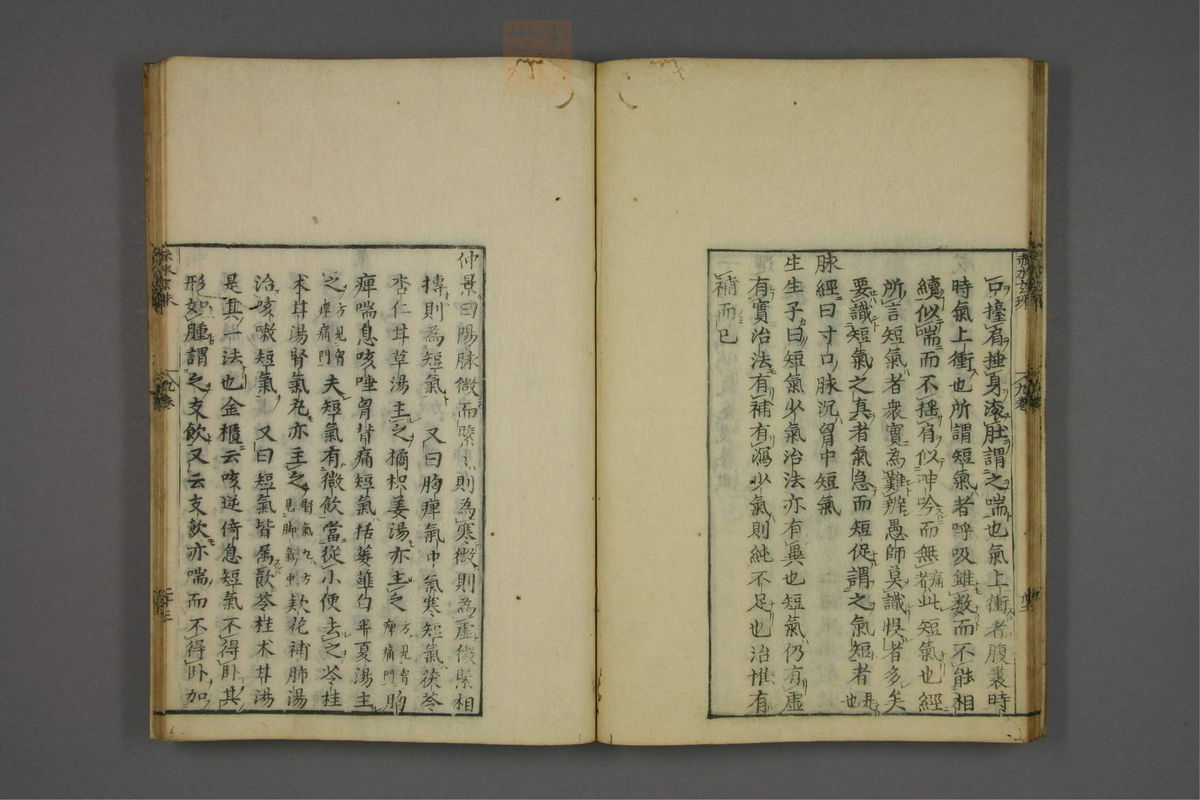 口擡肩捶身滚肚謂之喘也氣上衝者腹裏時
時氣上衝也所謂短氣者呼吸雖数而不能相
續似喘而不揺肩似呻吟而無痛者此短氣也經
所言短氣者衆實為難辨愚師莫識悞者多矣
要識短氣之真者氣急而短促謂之氣短者是也
脉經曰寸口脉沉胷中短氣
生生子曰短氣少氣治法亦有異也短氣仍有虛
有實治法有補有瀉少氣則純不足也治惟有
補而已
仲景曰陽脉微而緊緊則為寒微則為虛微緊相
摶則為短氣 又曰胸痺氣中氣寒短氣茯苓
杏仁甘草湯主之橘枳姜湯亦主之方見胷痺痛門 胸
痺喘息咳唾胷背痛短氣括蔞薤白半夏湯主
之方見胷痺痛門 夫短氣有微飲當從小便去之苓桂
术甘湯腎氣丸亦主之腎氣丸方見脚氣 款花補肺湯
治咳嗽短氣 又曰短氣皆属飲苓桂术甘湯
是其一法也金櫃云咳逆倚息短氣不得卧其
形如腫謂之支飲又云支飲亦喘而不得卧加
赤水玄珠
九卷
二十三